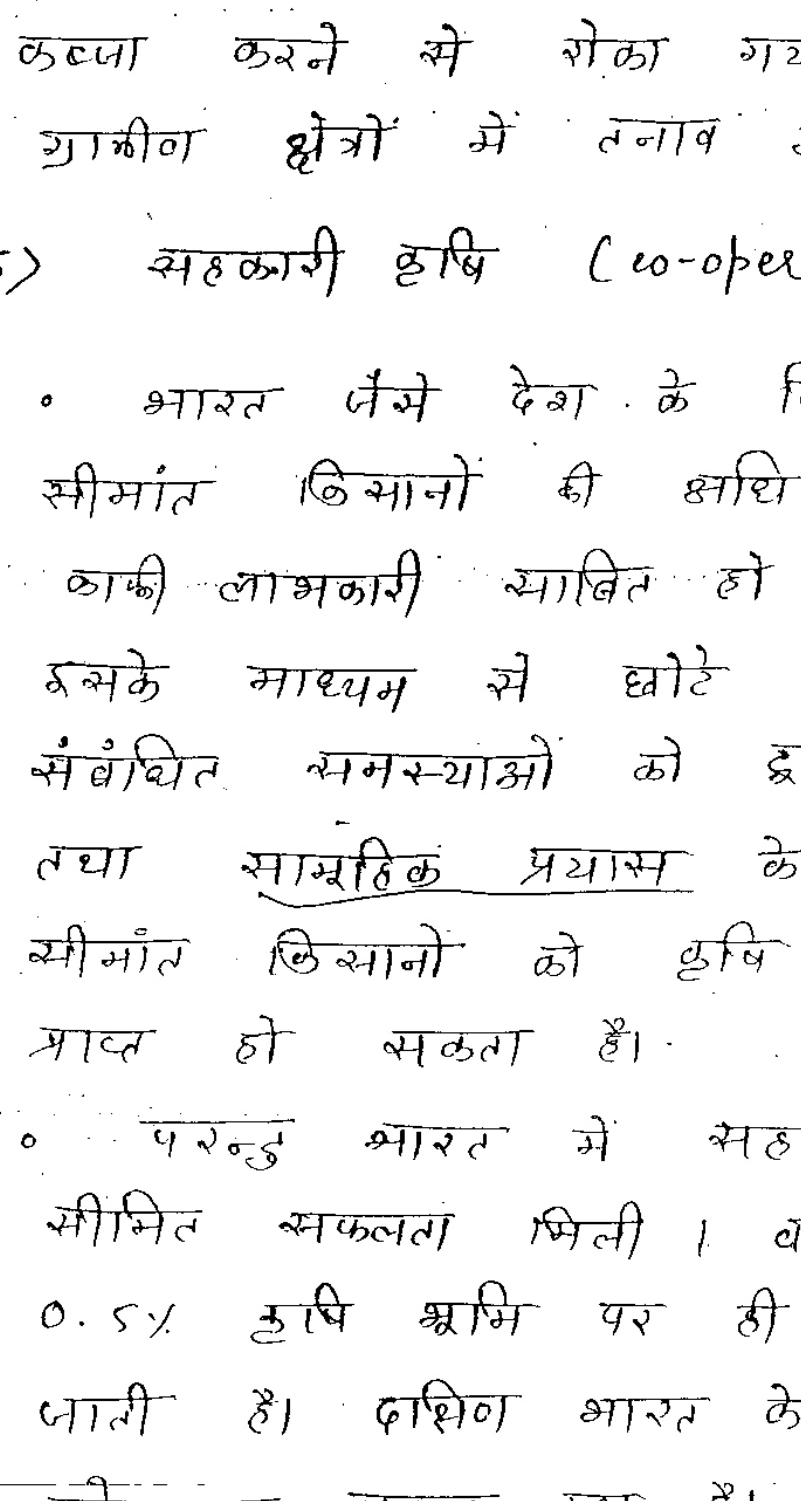 कब्जा करने से रोका गय
ग्रामीण क्षेत्रों में तनाव
सहकारी कृषि (co-oper
• भारत जैसे देश के
सीमांत किसानों की अधि
काफी लाभकारी साबित हो
इसके माध्यम से छोटे
संबंधित समस्याओं को दू
तथा सामूहिक प्रयास के
सीमांत किसानों को कृषि
प्राप्त हो सकता है।
• परन्तु भारत में सह
सीमित सफलता मिली । व
0.5% कृषि भूमि पर ही
जाती है। दक्षिण भारत के